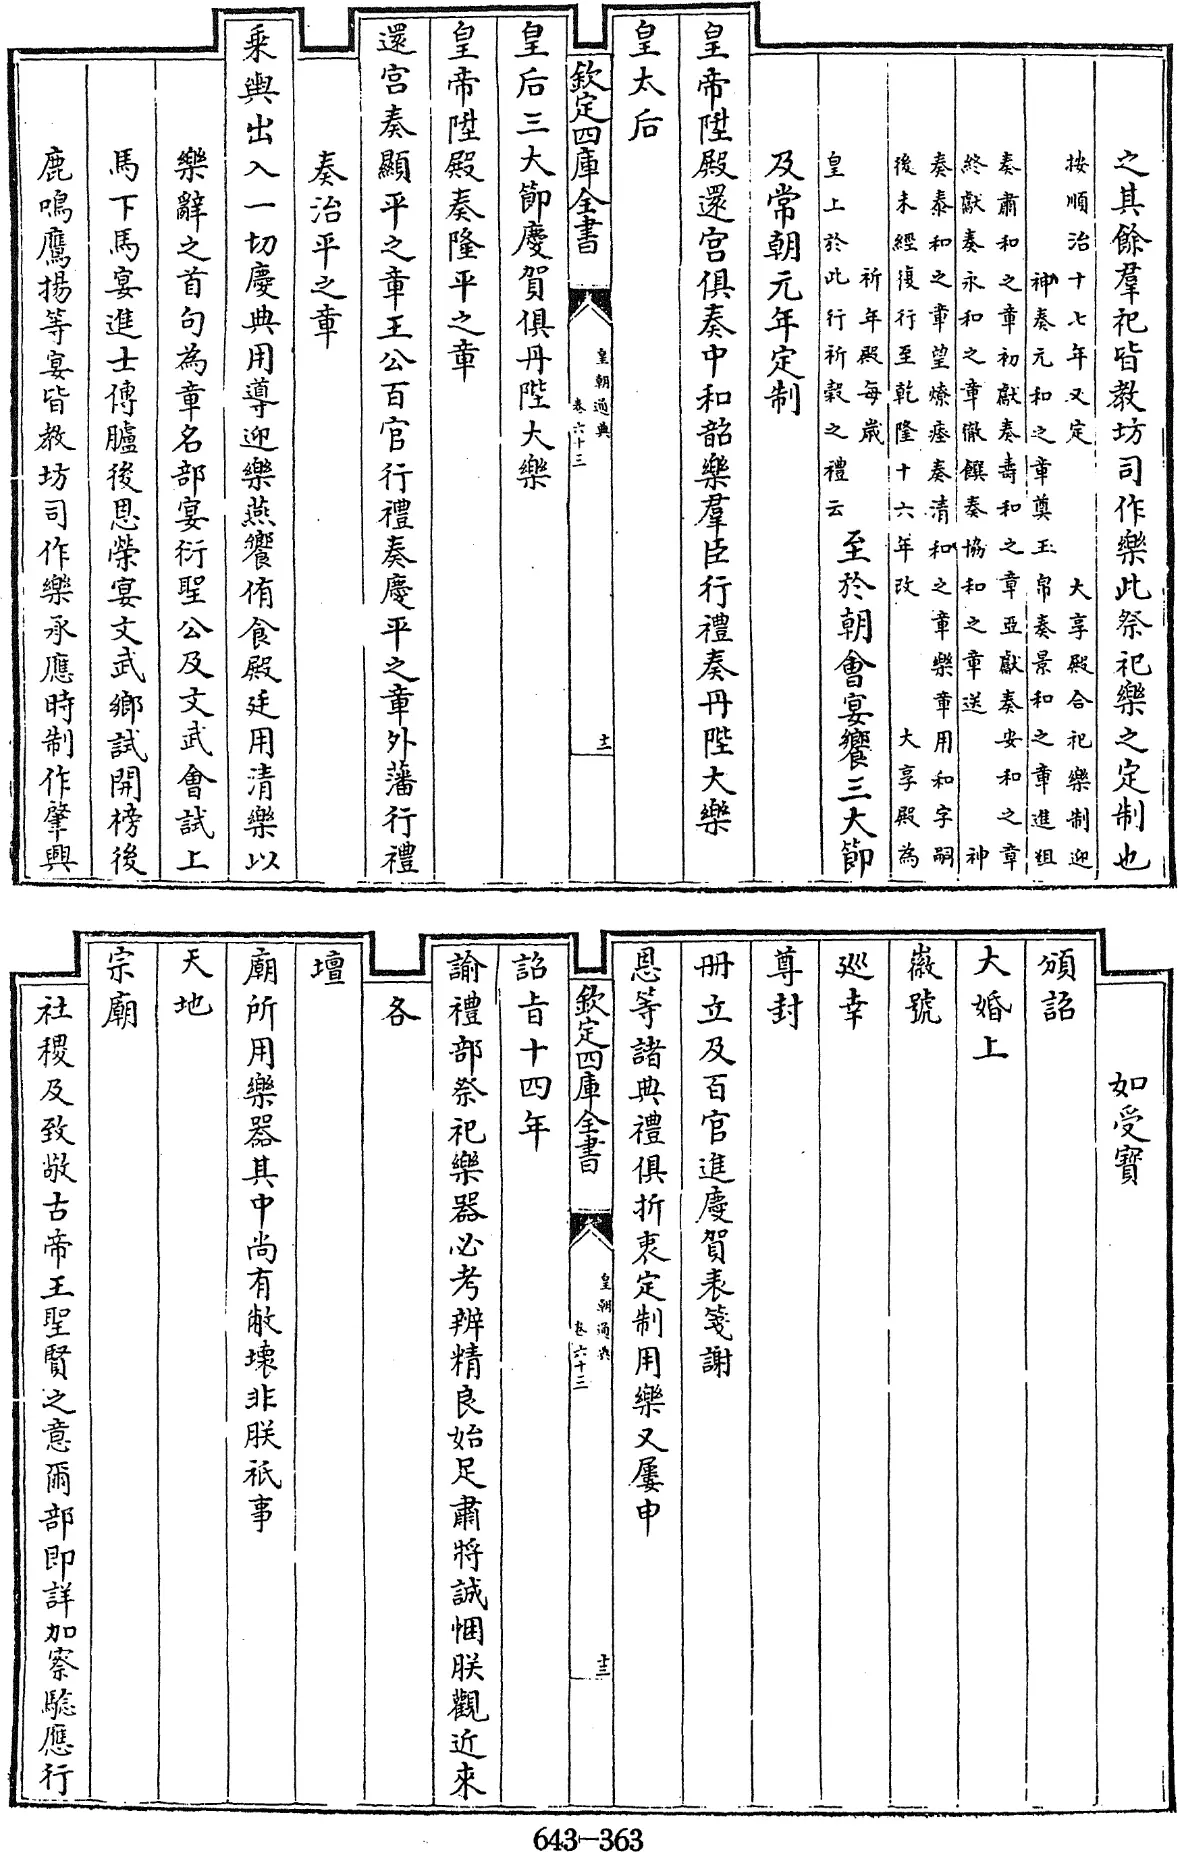 之其餘羣祀皆教坊司作樂此祭祀樂之定制也
按順治十七年又定 大享殿合祀樂制迎
神奏元和之章奠玉帛奏景和之章進俎
奏肅和之章初獻奏壽和之章亞獻奏安和之章
終獻奏永和之章徹饌奏協和之章送 神
奏泰和之章望燎瘞奏清和之章樂章用和字嗣
後未經復行至乾隆十六年改 大享殿為
祈年殿每歲
皇上於此行祈穀之禮云
至於朝會宴饗三大節
及常朝元年定制
皇帝陞殿還宮俱奏中和韶樂羣臣行禮奏丹陛大樂
皇太后
欽定四庫全書
皇朝通典
卷六十三
十二
皇后三大節慶賀俱丹陛大樂
皇帝陞殿奏隆平之章
還宮奏顯平之章王公百官行禮奏慶平之章外藩行禮
奏治平之章
乘輿出入一切慶典用導迎樂燕饗侑食殿廷用清樂以
樂辭之首句為章名部宴衍聖公及文武會試上
馬下馬宴進士傳臚後恩榮宴文武鄉試開榜後
鹿鳴鷹揚等宴皆教坊司作樂承應時制作肇興
如受寶
頒詔
大婚上
徽號
巡幸
尊封
冊立及百官進慶賀表箋謝
恩等諸典禮俱折衷定制用樂又屢申
欽定四庫全書
皇朝通典
卷六十三
十三
詔旨十四年
諭禮部祭祀樂器必考辨精良始足肅將誠悃朕觀近來
各
壇
廟所用樂器其中尚有敝壞非朕祇事
天地
宗廟
社稷及致敬古帝王聖賢之意爾部即詳加察驗應行
643-363